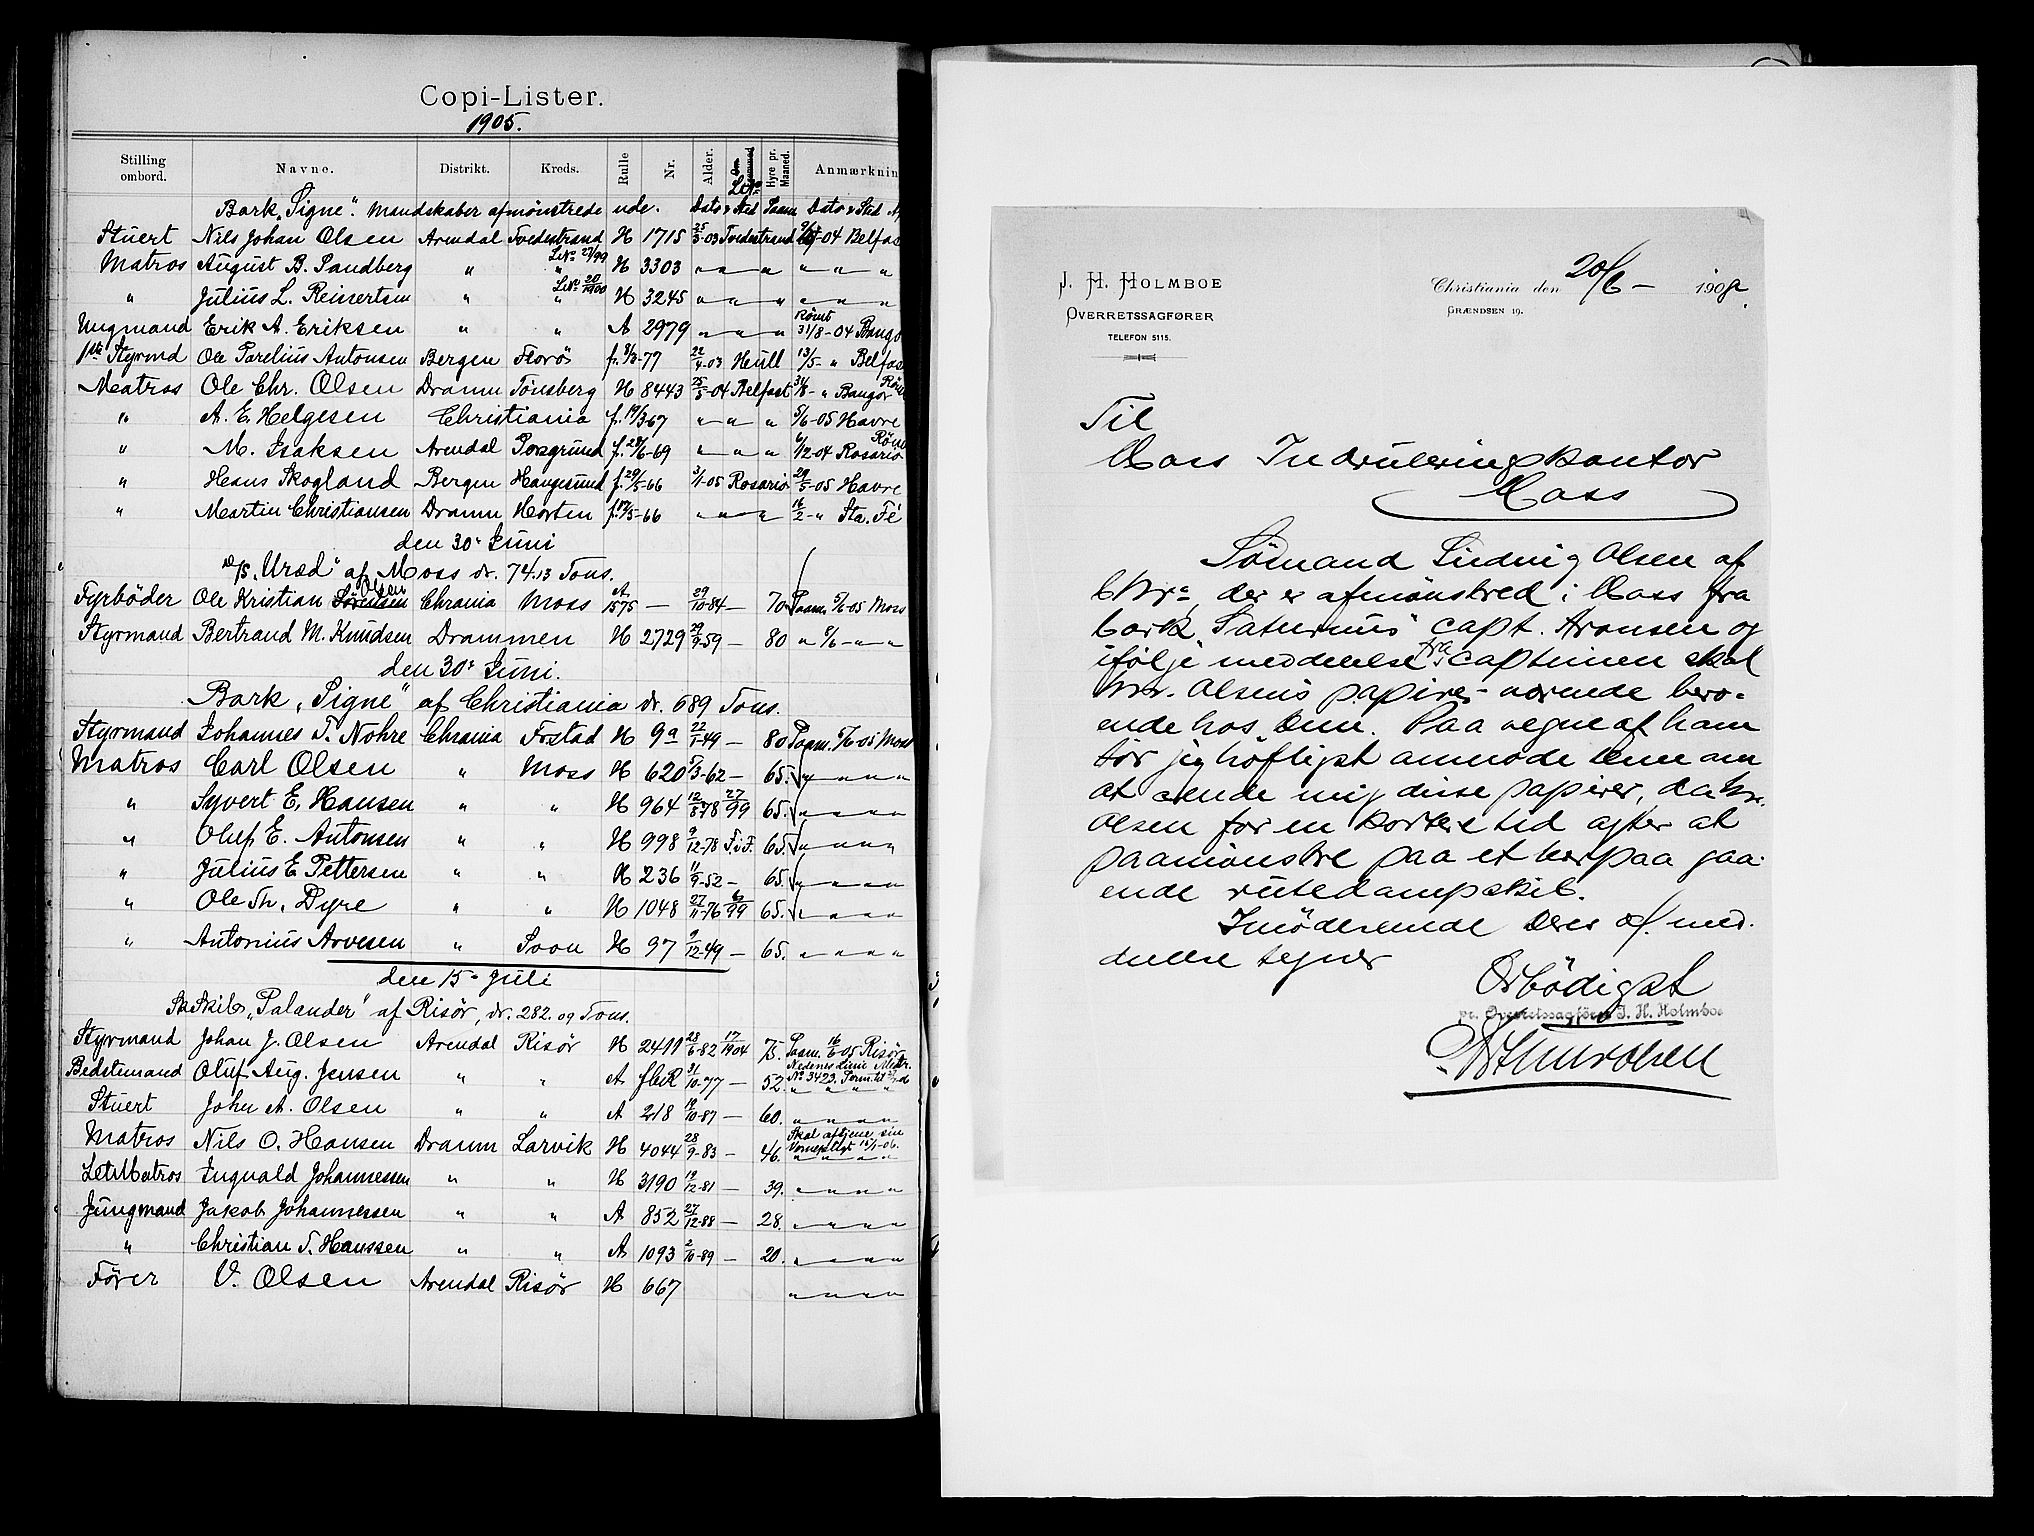 Copi-Lister.
1905.
Stilling ombord. Navne. Distrikt. Kreds. Rulle Nr. Alder. Hyre pr. Maaned. Anmærknin
Bark „Signe“. Mandskaber afmønstrede ude. Dato & Sted Paam Dato & Sted
Stuert Nils Johan Olsen Arendal Tvedestrand H 1715 25/3-03 Tvedestrand -04 Belfas
LNo 27/99
Matros August B. Sandberg " " H 3303 " " " " " "
LNo 20/1900
" Julius L. Reinertsen " " H 3245 " " " " " "
Ungmand Erik A. Eriksen " " A 2979 " " " Rømt 31/8-04 Bango
1ste Styrmd Ole Parelius Antonsen Bergen Florø f. 9/3-77 22/4-03 Hull 13/5- " Belfas
Matros Ole Chr. Olsen Dramn Tönsberg H 8443 25/5-04 Belfast 31/8- " Bangor Röm
" A. E. Helgesen Christiania f. 19/3-67 " " " 5/6-05 Havre
" M. Isaksen Arendal Porsgrund f. 28/6-69 " " " 6/12-04 Rosario Röm
" Hans Skogland Bergen Haugesund f. 29/5-66 3/1-05 Rosario 29/5-05 Havre
" Martin Christiansen Dramn Horten f. 17/5-66 " " " 16/2- " Sta. Fé
den 30' Juni
D/S „Uræd“ af Moss dr. 74.13 Tons.
Fyrbøder Ole Kristian Sørensen Olsen Chrania Moss A 1575 — 29/10-84 — 70 Paam. 6/6-05 Moss
Styrmand Bertrand M. Knudsen Drammen H 2729 29/9-59 — 80 " 6/6 - " "
den 30' Juni.
Bark „Signe“ af Christiania dr. 689 Tons.
Styrmand Johannes T. Nohre Chrania Frstad H 9a 22/1-49 — 80 Paam. 5/6-05 Moss
Matros Carl Olsen " Moss H 620 5/3-62 — 65. " " " "
" Syvert E. Hansen " " H 964 12/8-78 27/99 65. " " " "
" Oluf E. Antonsen " " H 998 9/12-78 T.i.F. 65. " " " "
" Julius E Pettersen " " H 236 11/9-52 — 65. " " " "
" Ole Th. Dyre " " H 1048 27/11-76 6/99 65. " " " "
" Antonius Arvesen " Soon H 97 9/12-49 — 65. " " " "
den 15' Juli
SkSkib „Palander“ af Risör, dr. 282. og Tons.
Styrmand Johan J. Olsen Arendal Risör H 2411 28/6-82 17/1904 75. Paam. 16/6-05 Risör
Bedstemand Oluf Aug. Jensen " " A fleR 31/10-77 — 52. Nedenes No 3423. " " " "
Stuert John A. Olsen " " A 218 19/10-87 — 60. " " " "
Matros Nils O. Hansen Dramn Larvik H 4044 28/9-83 — 46. Skal aftjene sin Værnepligt 15/1-06. " " " "
LetMatros Ingvald Johannessen " " H 3190 19/12-81 — 39. " " " "
Jungmand Jakob Johannessen " " A 852 27/12-88 — 28. " " " "
" Christian T. Hanssen " " A 1093 2/10-89 — 20. " " " "
Fører V. Olsen Arendal Risör H 667 " " " "
J. H. Holmboe
Overretssagfører
Telefon 5115.
Christiania den 20/6 - 190
Grændsen 19.
Til
Moss Indrulleringskontor
Moss
Sömand Ludvig Olsen af
Chr.a, der er afmönstred i Moss fra
bark „Saturnus“ capt. Aronsen og
ifölje meddelelse fra captinen skal
hr. Olsens papirer værende bero-
ende hos Dem. Paa vegne af ham
tör jeg höfligst anmode Dem om
at sende mig disse papirer, da hr.
Olsen for en kortere tid agter at
paamönstre paa et herpaa gaa-
ende rutedampskib.
Imödeseende Deres af. med-
delelse tegner
Ærbödigst
pr. Overretssagfører J. H. Holmboe